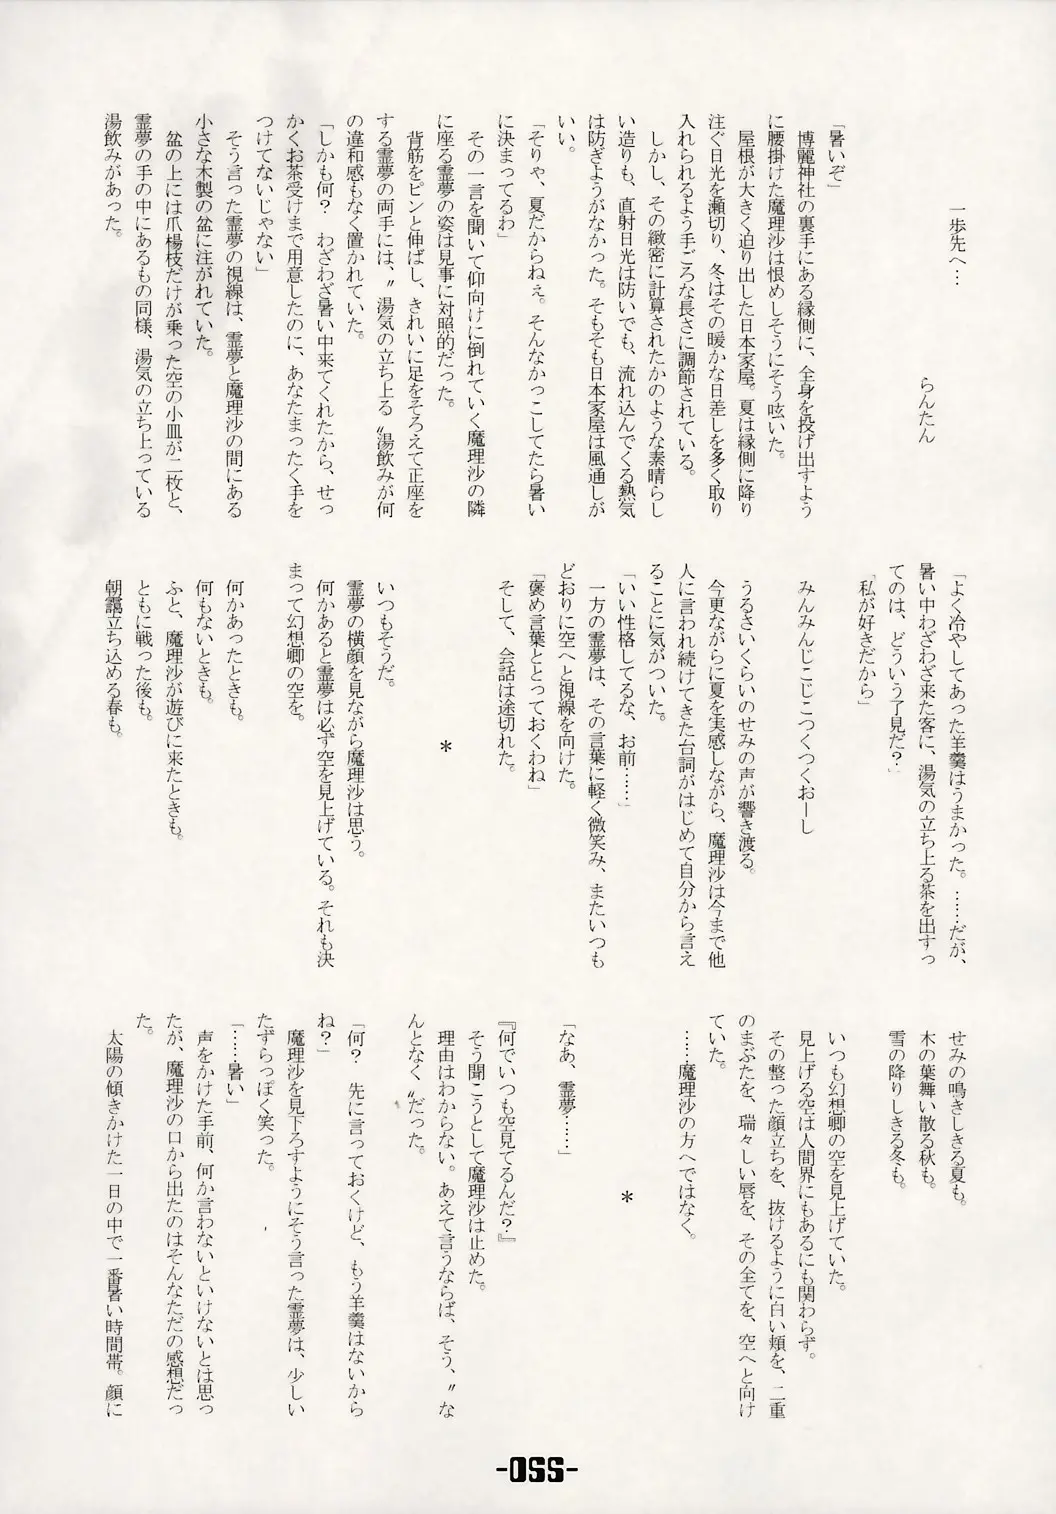 一歩先へ…
らんたん
「暑いぞ」
　博麗神社の裏手にある縁側に、全身を投げ出すよう
に腰掛けた魔理沙は恨めしそうにそう呟いた。
　屋根が大きく迫り出した日本家屋。夏は縁側に降り
注ぐ日光を瀬切り、冬はその暖かな日差しを多く取り
入れられるよう手ごろな長さに調節されている。
　しかし、その緻密に計算されたかのような素晴らし
い造りも、直射日光は防いでも、流れ込んでくる熱気
は防ぎようがなかった。そもそも日本家屋は風通しが
いい。
「そりゃ、夏だからねぇ。そんなかっこしてたら暑い
に決まってるわ」
　その一言を聞いて仰向けに倒れていく魔理沙の隣
に座る霊夢の姿は見事に対照的だった。
　背筋をピンと伸ばし、きれいに足をそろえて正座を
する霊夢の両手には、〝湯気の立ち上る〟湯飲みが何
の違和感もなく置かれていた。
「しかも何？　わざわざ暑い中来てくれたから、せっ
かくお茶受けまで用意したのに、あなたまったく手を
つけてないじゃない」
　そう言った霊夢の視線は、霊夢と魔理沙の間にある
小さな木製の盆に注がれていた。
　盆の上には爪楊枝だけが乗った空の小皿が二枚と、
霊夢の手の中にあるもの同様、湯気の立ち上っている
湯飲みがあった。
「よく冷やしてあった羊羹はうまかった。……だが、
暑い中わざわざ来た客に、湯気の立ち上る茶を出すっ
てのは、どういう了見だ？」
「私が好きだから」
　みんみんじこじこつくつくおーし
　うるさいくらいのせみの声が響き渡る。
　今更ながらに夏を実感しながら、魔理沙は今まで他
人に言われ続けてきた台詞がはじめて自分から言え
ることに気がついた。
「いい性格してるな、お前……」
　一方の霊夢は、その言葉に軽く微笑み、またいつも
どおりに空へと視線を向けた。
「褒め言葉ととっておくわね」
　そして、会話は途切れた。
＊
　いつもそうだ。
　霊夢の横顔を見ながら魔理沙は思う。
　何かあると霊夢は必ず空を見上げている。それも決
まって幻想卿の空を。
　何かあったときも。
　何もないときも。
　ふと、魔理沙が遊びに来たときも。
　ともに戦った後も。
　朝靄立ち込める春も。
　せみの鳴きしきる夏も。
　木の葉舞い散る秋も。
　雪の降りしきる冬も。
　いつも幻想卿の空を見上げていた。
　見上げる空は人間界にもあるにも関わらず。
　その整った顔立ちを、抜けるように白い頬を、二重
のまぶたを、瑞々しい唇を、その全てを、空へと向け
ていた。
　……魔理沙の方へではなく。
＊
「なあ、霊夢……」
『何でいつも空見てるんだ？』
　そう聞こうとして魔理沙は止めた。
　理由はわからない。あえて言うならば、そう、〝な
んとなく〟だった。
「何？　先に言っておくけど、もう羊羹はないから
ね？」
　魔理沙を見下ろすようにそう言った霊夢は、少しい
たずらっぽく笑った。
「……暑い」
　声をかけた手前、何か言わないといけないとは思っ
たが、魔理沙の口から出たのはそんなただの感想だっ
た。
　太陽の傾きかけた一日の中で一番暑い時間帯。顔に
-055-